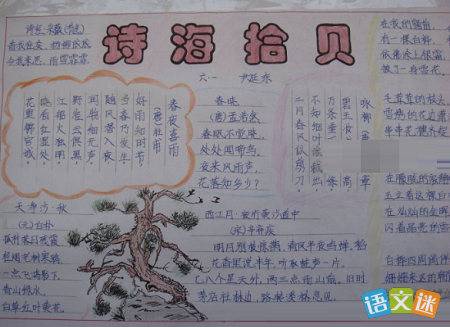 诗海拾贝
六一
诗经·采薇(节选)
昔我往矣，杨柳依依
今我来思，雨雪霏霏
春夜喜雨
(唐)杜甫
好雨知时节，
当春乃发生。
随风潜入夜，
润物细无声。
野径云俱黑，
江船火独明。
晓看红湿处，
花重锦官城。
春晓
(唐)孟浩然
春眠不觉晓，
处处闻啼鸟。
夜来风雨声，
花落知多少？
咏柳
不知细叶谁裁出，
二月春风似剪刀。
天净沙·秋
(元)白朴
孤村落日残霞
轻烟老树寒鸦
一点飞鸿影下
青山绿水
白草红叶黄花
西江月·夜行黄沙道中
(宋)辛弃疾
明月别枝惊鹊，清风半夜鸣蝉。稻
花香里说丰年，听取蛙声一片。
七八个星天外，两三点雨山前。旧时
茅店社林边，路转溪桥忽见。
在我的窗前
有一棵白桦
披了一身雪花
毛茸茸的枝头
在灿灿的金晖
白桦四周徜徉
语文迷